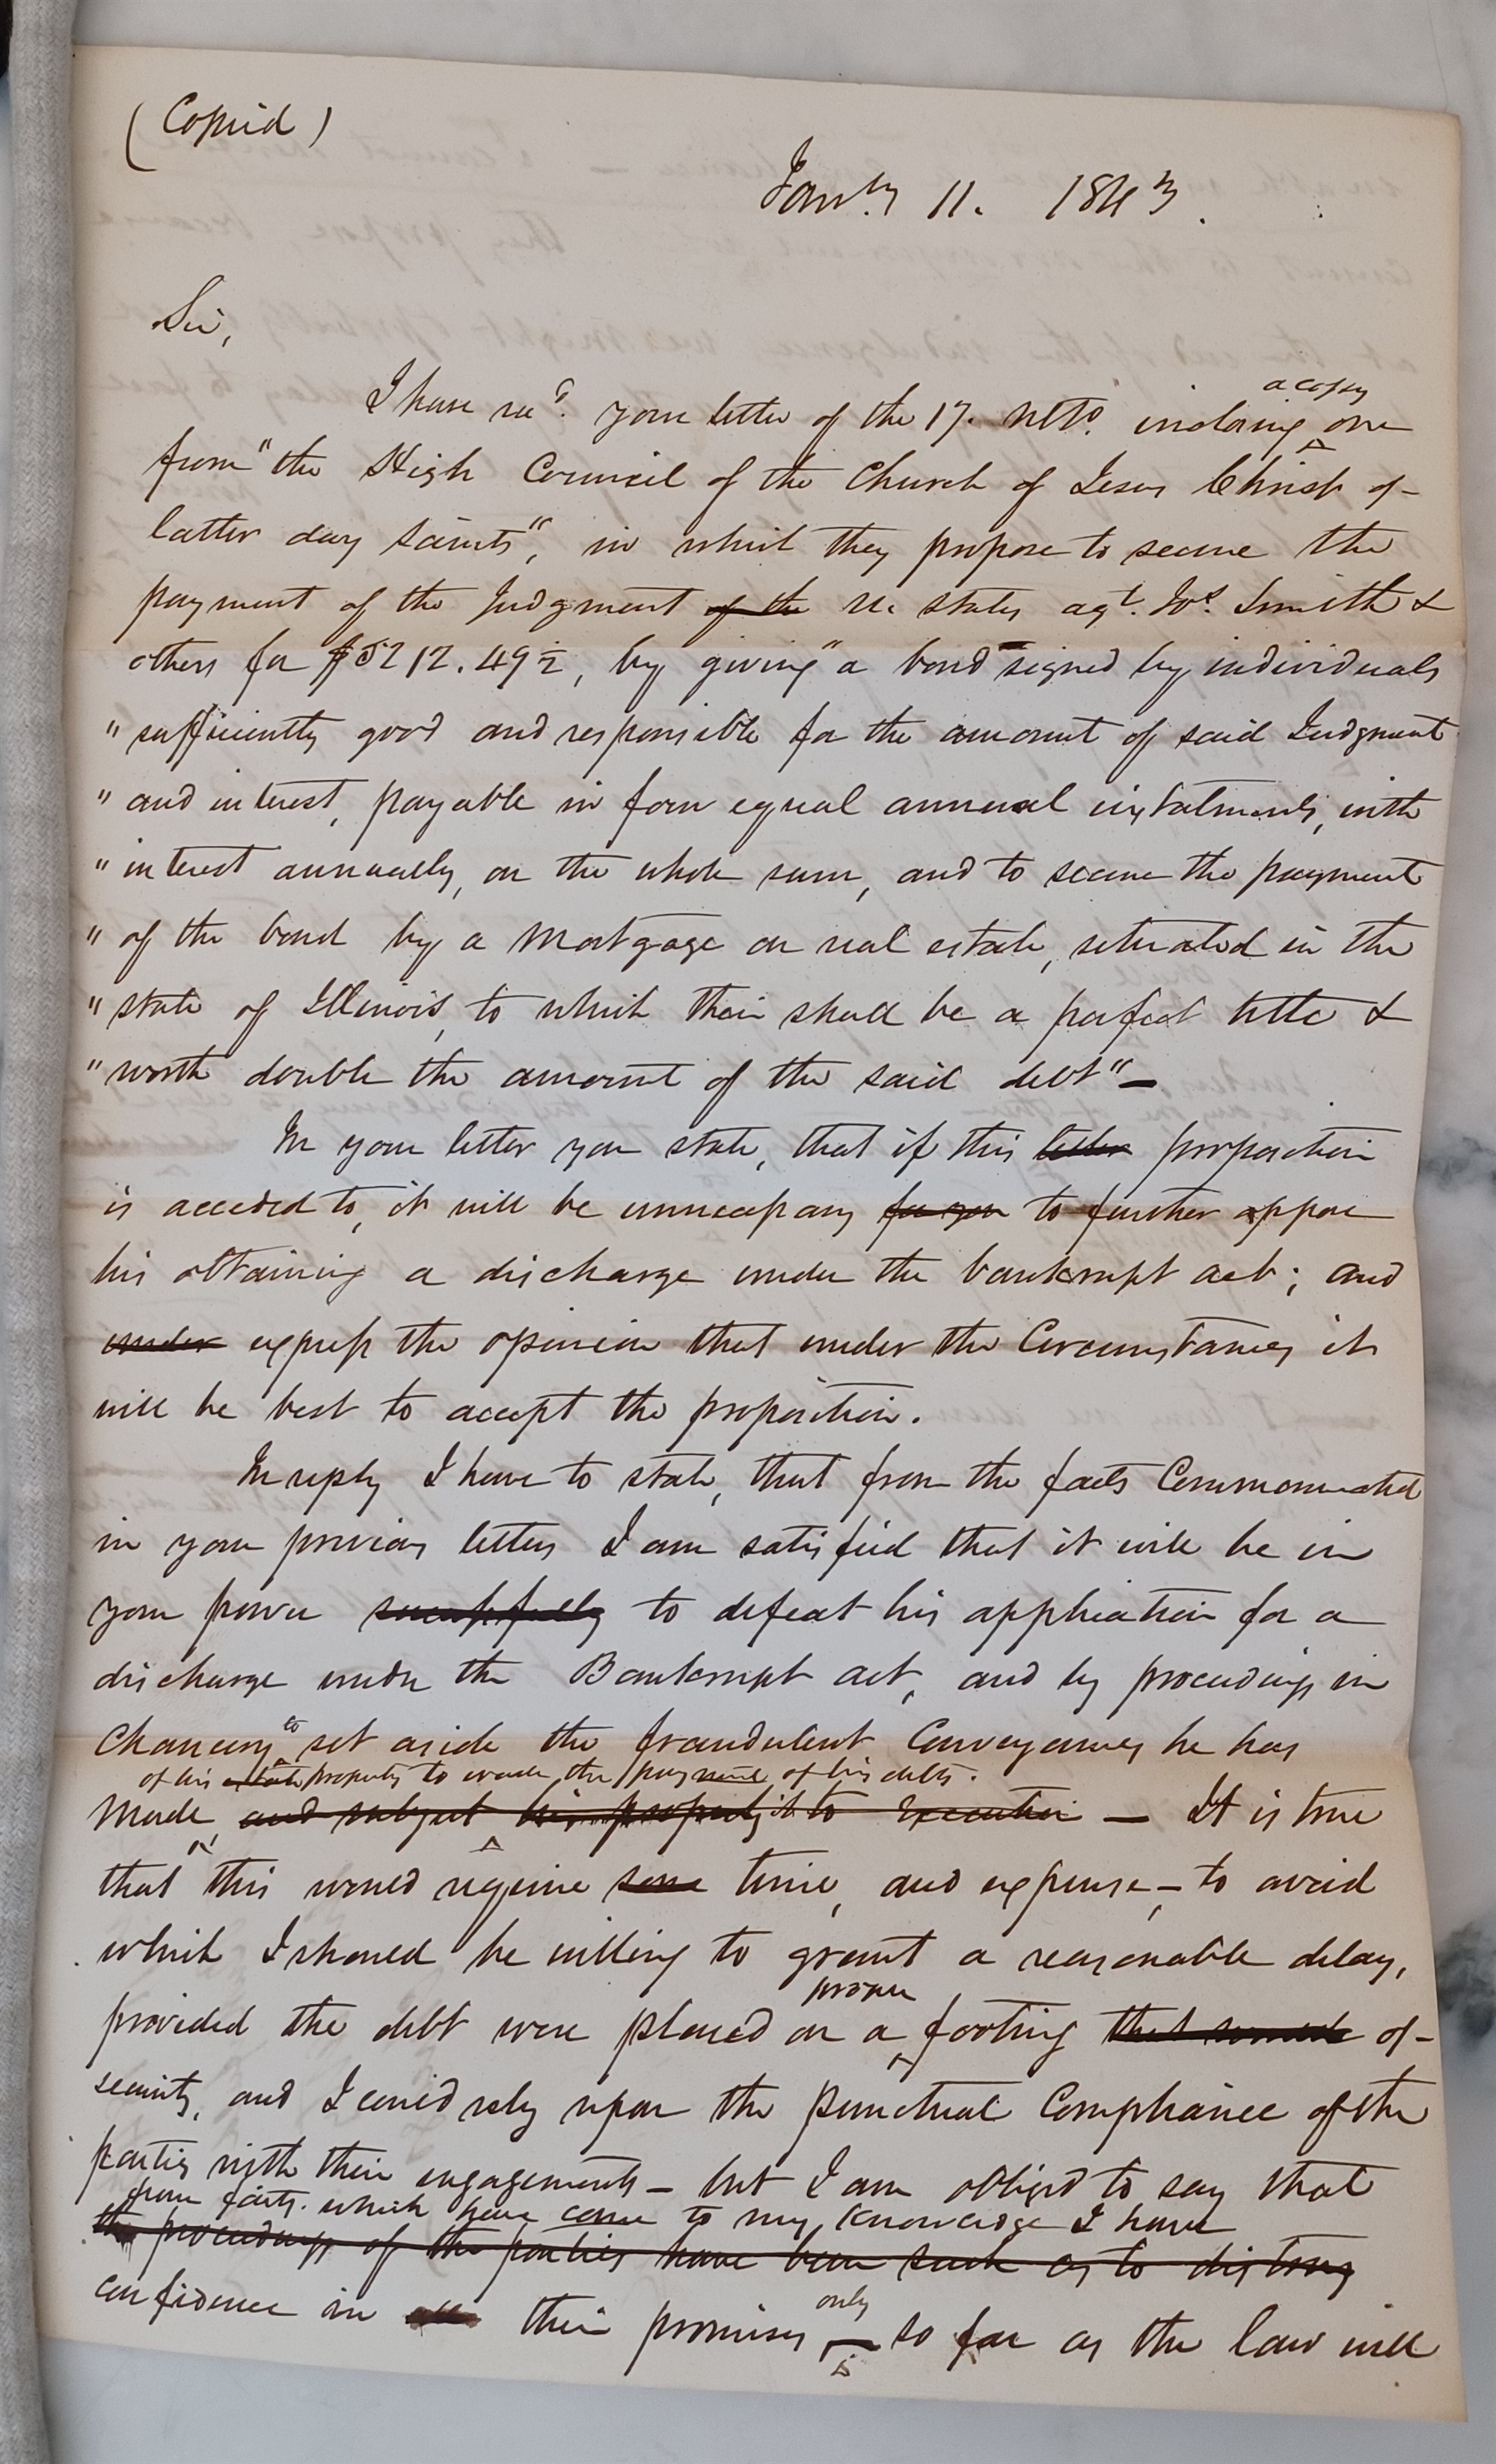 (Copied)
Jan.ry 11. 1843.
Sir,
I have recd. your letter of the 17. ulto. inclosing a copy one
from "the High Council of the Church of Jesus Christ of
latter day saints", in which they propose to secure the
payment of the Judgment of the U. States agt. Jos. Smith &
others for $5212.49½, by giving "a bond signed by individuals
" sufficiently good and responsible for the amount of said Judgment
" and interest, payable in four equal annual instalments, with
" interest annually, on the whole sum, and to secure the payment
" of the bond by a Mortgage on real estate, situated in the
" state of Illinois, to which their shall be a perfect title &
" worth double the amount of the said debt" —
In your letter you state, that if this letter proposition
is acceded to, it will be unnecessary for you to further oppose
his obtaining a discharge under the bankrupt act; and
under express the opinion that under the Circumstances it
will be best to accept the proposition.
In reply I have to state, that from the facts Communicated
in your previous letters I am satisfied that it will be in
your power successfully to defeat his application for a
discharge under the Bankrupt act, and by proceedings in
Chancery to set aside the fraudulent Conveyances he has
of his estate property to evade the payment of his debts.
made and subject his property it to Execution — It is true
that this would require some time, and expense, — to avoid
which I should be willing to grant a reasonable delay,
provided the debt were placed on a proper footing that would of
security, and I could rely upon the punctual Compliance of the
parties with their engagements — but I am obliged to say that
from facts which have come to my knowledge I have
the proceedings of the parties have been such as to destroy
confidence in all their promises only — so far as the law will